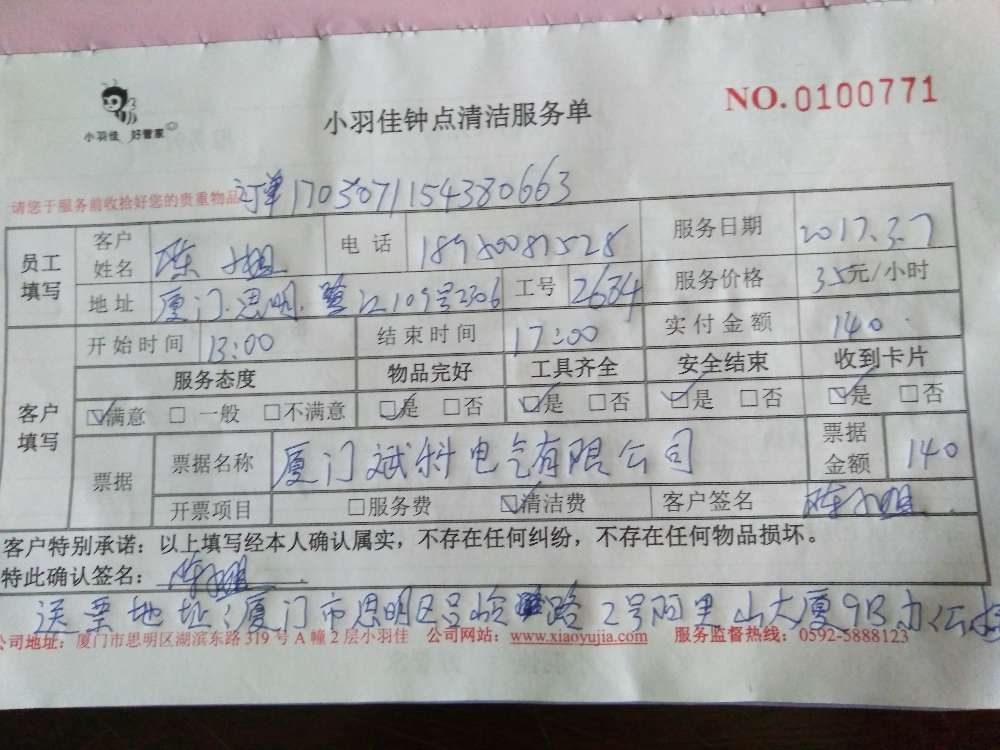 小羽佳 好管家
小羽佳钟点清洁服务单
NO.0100771
请您于服务前收拾好您的贵重物品
订单1703071154380663
员工填写
客户姓名 陈小姐 电话 服务日期 2017.3.7
地址 厦门.思明.鹭江109号2306 工号 2634 服务价格 35元/小时
客户填写
开始时间 13:00 结束时间 17:00 实付金额 140
服务态度 物品完好 工具齐全 安全结束 收到卡片
☑满意 □一般 □不满意 ☑是 □否 ☑是 □否 ☑是 □否 ☑是 □否
票据 票据名称 厦门斌科电气有限公司 票据金额 140
开票项目 □服务费 ☑清洁费 客户签名 陈小姐
客户特别承诺：以上填写经本人确认属实，不存在任何纠纷，不存在任何物品损坏。
特此确认签名：陈小姐
送票地址：厦门市思明区 路2号阿里山大厦9B办公
公司地址：厦门市思明区湖滨东路319号A幢2层小羽佳 公司网站：www.xiaoyujia.com 服务监督热线：0592-5888123